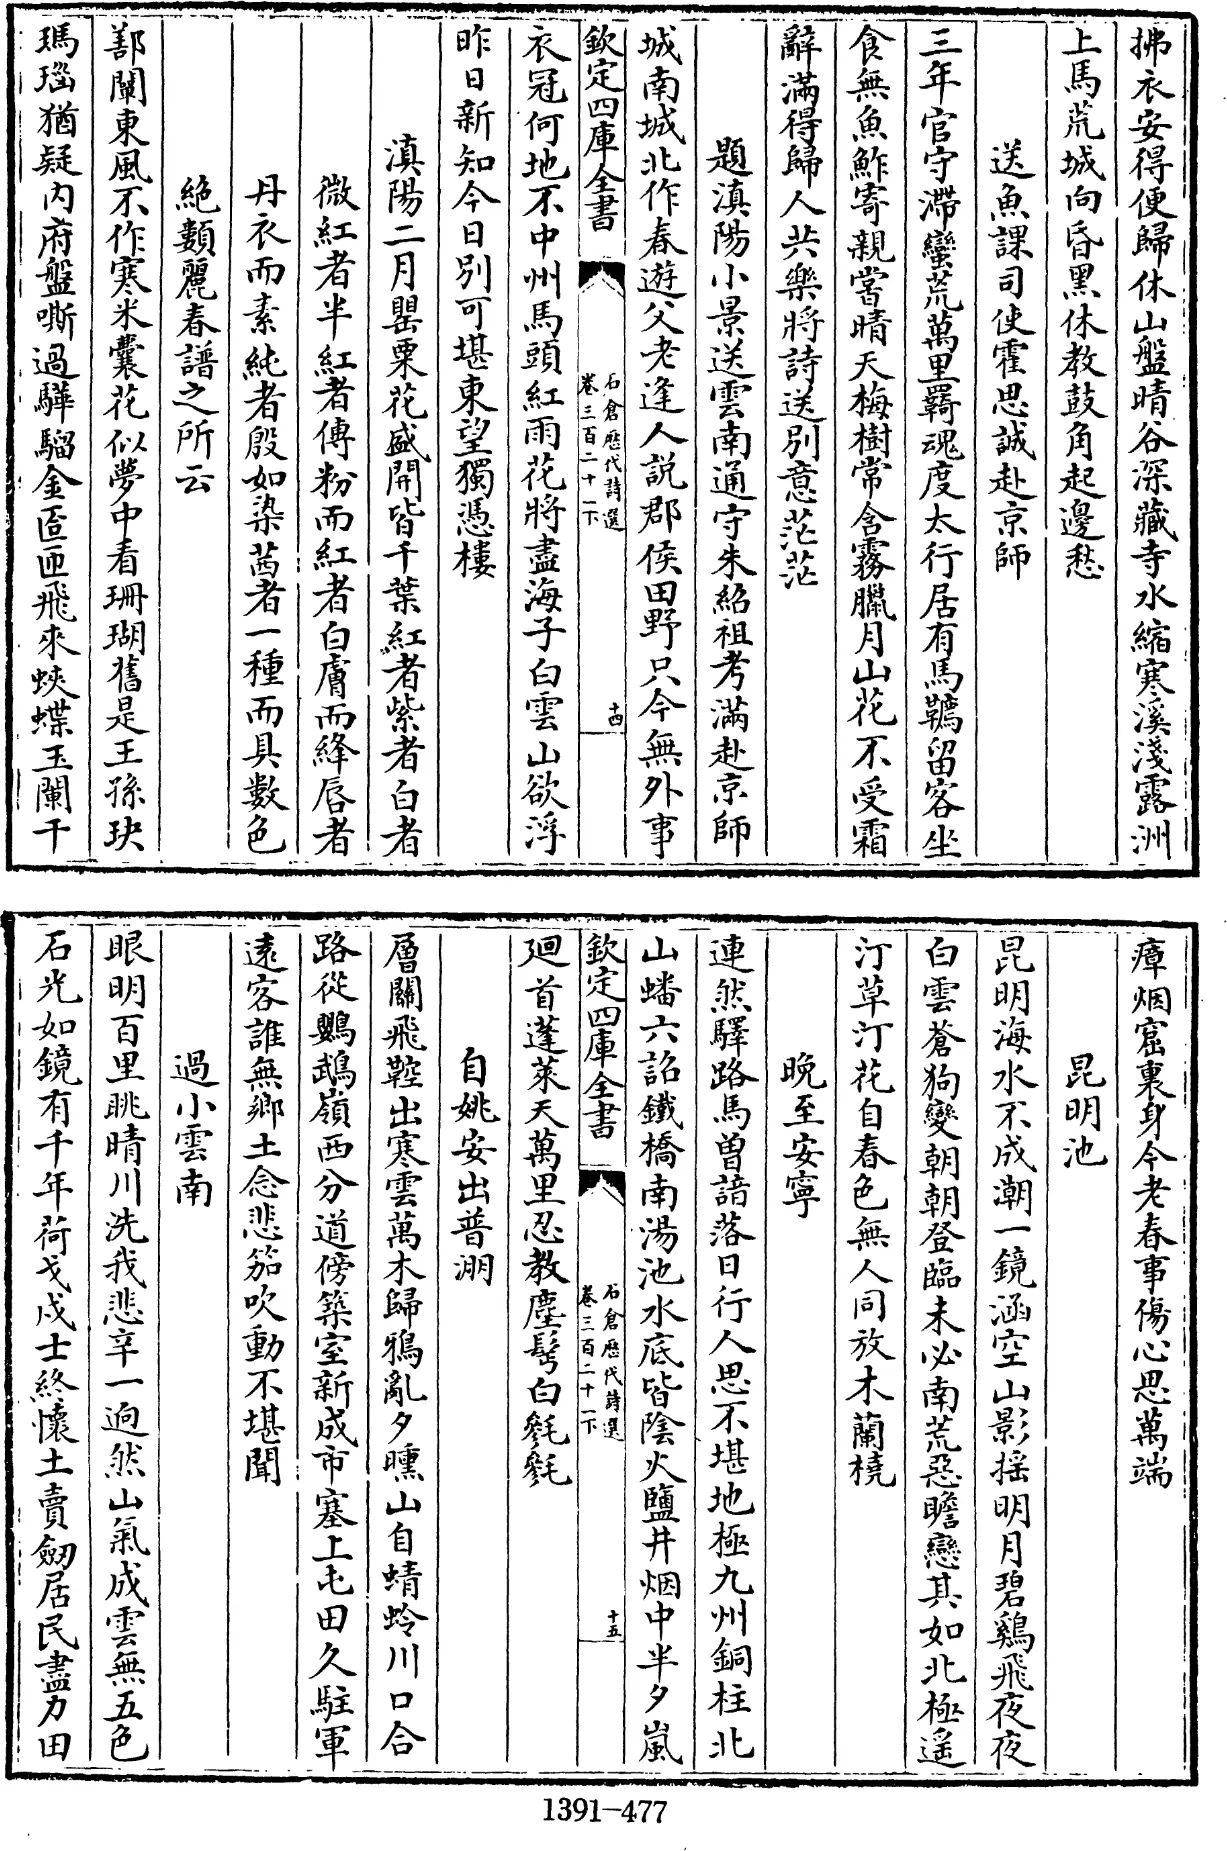 拂衣安得便歸休山盤晴谷深藏寺水縮寒溪淺露洲
上馬荒城向昏黑休教鼓角起邊愁
送魚課司使霍思誠赴京師
三年官守滯蠻荒萬里羇魂度太行居有馬韀留客坐
食無魚鮓寄親嘗晴天梅樹常含霧臘月山花不受霜
辭滿得歸人共樂將詩送別意茫茫
題滇陽小景送雲南通守朱紹祖考滿赴京師
城南城北作春遊父老逢人説郡侯田野只今無外事
欽定四庫全書
石倉歷代詩選
卷三百二十一下
十四
衣冠何地不中州馬頭紅雨花將盡海子白雲山欲浮
昨日新知今日別可堪東望獨憑樓
滇陽二月罌粟花盛開皆千葉紅者紫者白者
微紅者半紅者傅粉而紅者白膚而絳唇者
丹衣而素純者殷如染茜者一種而具數色
絶纇麗春譜之所云
鄯闡東風不作寒米囊花似夢中看珊瑚舊是王孫玦
瑪瑙猶疑内府盤嘶過驊騮金匼匝飛來蛺蝶玉闌干
瘴烟窟裏身今老春事傷心思萬端
昆明池
昆明海水不成潮一鏡涵空山影摇明月碧鷄飛夜夜
白雲蒼狗變朝朝登臨未必南荒惡瞻戀其如北極遥
汀草汀花自春色無人同放木蘭橈
晩至安寧
連然驛路馬曽諳落日行人思不堪地極九州銅柱北
山蟠六詔鐵橋南湯池水底皆陰火鹽井烟中半夕嵐
欽定四庫全書
石倉歷代詩選
卷三百二十一下
十五
廻首蓬萊天萬里忍教塵髩白毿毿
自姚安出普淜
層關飛鞚出寒雲萬木歸鴉亂夕曛山自蜻蛉川口合
路從鸚鵡嶺西分道傍築室新成市塞上屯田久駐軍
遠客誰無鄉土念悲笳吹動不堪聞
過小雲南
眼明百里眺晴川洗我悲辛一逈然山氣成雲無五色
石光如鏡有千年荷戈戍士終懷土賣劒居民盡力田
1391-477